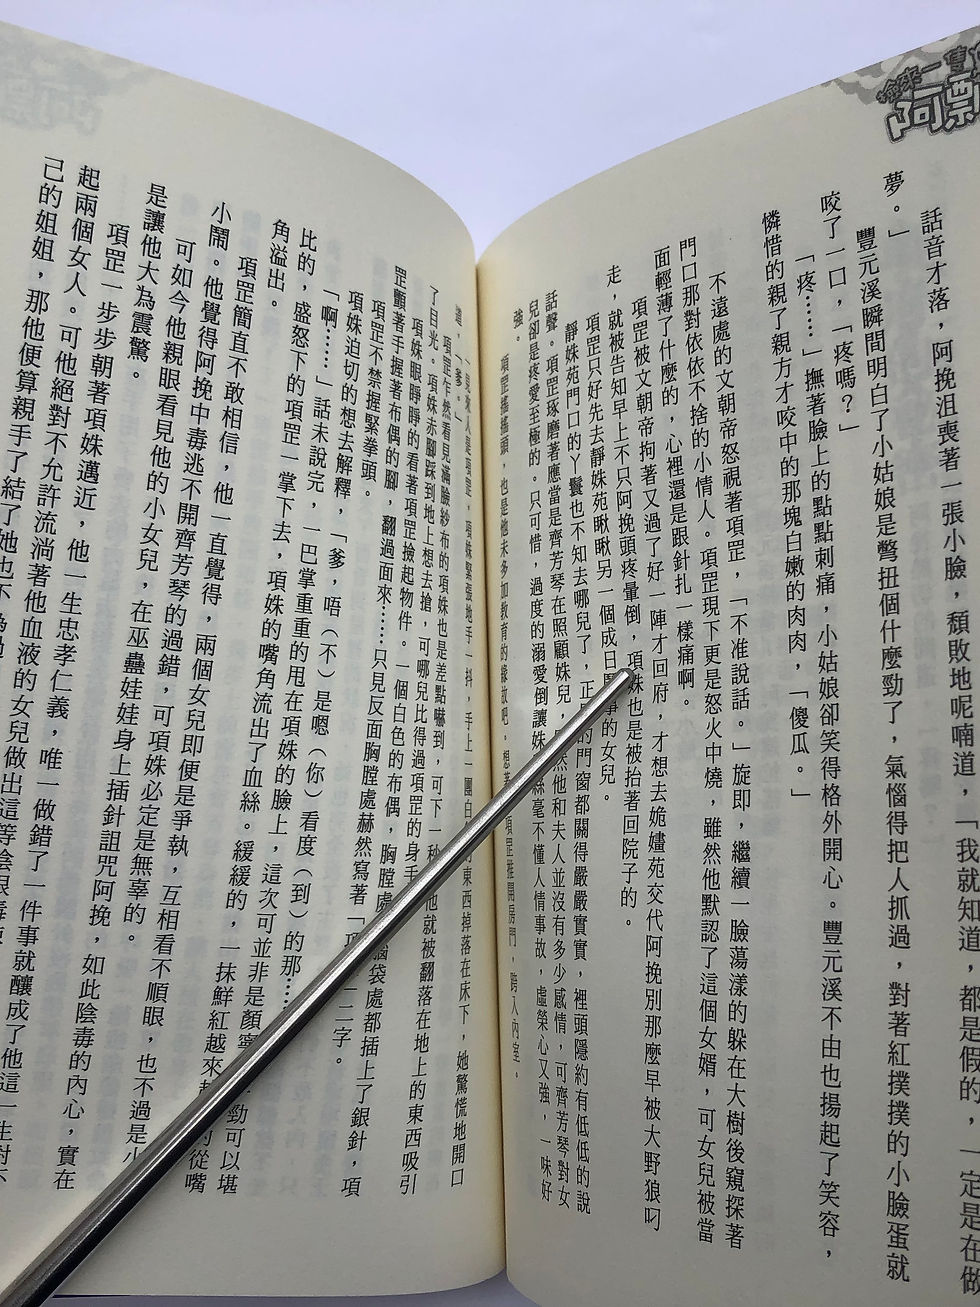 撿來一隻
阿飄
話音才落，阿挽沮喪著一張小臉，頹敗地呢喃道，「我就知道，都是假的，一定是在做
夢。」
豐元溪瞬間明白了小姑娘是彆扭個什麼勁了，氣惱得把人抓過，對著紅撲撲的小臉蛋就
咬了一口，「疼嗎？」
「疼……」撫著臉上的點點刺痛，小姑娘卻笑得格外開心。豐元溪不由也揚起了笑容，
憐惜的親了親方才咬中的那塊白嫩的肉肉，「傻瓜。」
不遠處的文朝帝怒視著項罡，「不准說話。」旋即，繼續一臉蕩漾的躲在大樹後窺探著
門口那對依依不捨的小情人。項罡現下更是怒火中燒，雖然他默認了這個女婿，可女兒被當
面輕薄了什麼的，心裡還是跟針扎一樣痛啊。
項罡被文朝帝拘著又過了好一陣才回府，才想去姽嫿苑交代阿挽別那麼早被大野狼叼
走，就被告知早上不只阿挽頭疼暈倒，項姝也是被抬著回院子的。
項罡只好先去靜姝苑瞅瞅另一個成日鬧事的女兒。
靜姝苑門口的丫鬟也不知去哪兒了，正 的門窗都關得嚴嚴實實，裡頭隱約有低低的說
話聲。項罡琢磨著應當是齊芳琴在照顧姝兒， 然他和夫人並沒有多少感情，可齊芳琴對女
兒卻是疼愛至極的。只可惜，過度的溺愛倒讓姝 絲毫不懂人情事故，虛榮心又強，一味好
強。
項罡搖搖頭，也是他未多加教育的緣故吧。想著 項罡推開房門，跨入內室。
「 項罡，項姝緊張地手一抖，手上一團白 東西掉落在床下，她驚慌地開口
道，「爹。」
項罡乍然看見滿臉紗布的項姝也是差點嚇到，可下一秒 他就被翻落在地上的東西吸引
了目光。項姝赤腳踩到地上想去搶，可哪兒比得過項罡的身手
項姝眼睜睜的看著項罡撿起物件。一個白色的布偶，胸膛處 腦袋處都插上了銀針，項
罡顫著手握著布偶的腳，翻過面來……只見反面胸膛處赫然寫著「項 」二字。
項罡不禁握緊拳頭。
項姝迫切的想去解釋，「爹，唔（不）是嗯（你）看度（到）的那…
「啊……」話未說完，一巴掌重重的甩在項姝的臉上，這次可並非是顏寧 勁可以堪
比的，盛怒下的項罡一掌下去，項姝的嘴角流出了血絲。緩緩的，一抹鮮紅越來越 的從嘴
角溢出。
項罡簡直不敢相信，他一直覺得，兩個女兒即便是爭執，互相看不順眼，也不過是小
小鬧。他覺得阿挽中毒逃不開齊芳琴的過錯，可項姝必定是無辜的。
可如今他親眼看見他的小女兒，在巫蠱娃娃身上插針詛咒阿挽，如此陰毒的內心，實在
是讓他大為震驚。
項罡一步步朝著項姝邁近，他一生忠孝仁義，唯一做錯了一件事就釀成了他這一生對不
起兩個女人。可他絕對不允許流淌著他血液的女兒做出這等陰狠毒
己的姐姐，那他便算親手了結了她也不